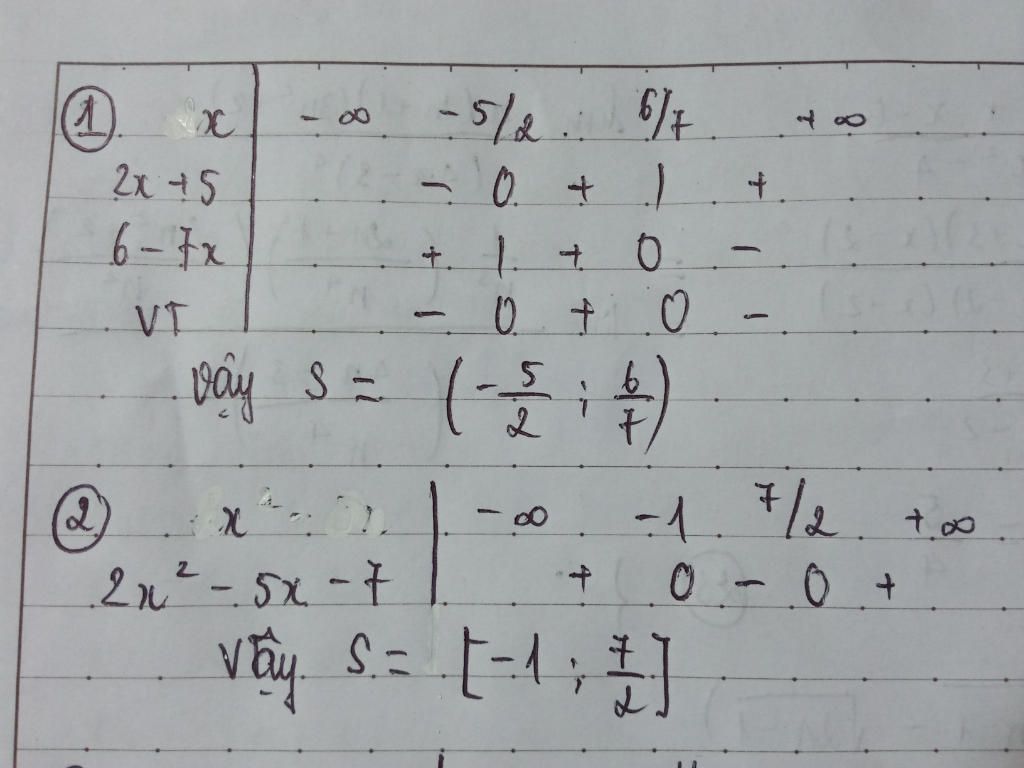 ① x | -∞ -5/2 6/7 +∞
2x+5 | - 0 + | +
6-7x | + | + 0 -
VT | - 0 + 0 -
Vậy S = (-5/2 ; 6/7)
② x | -∞ -1 7/2 +∞
2x² - 5x - 7 | + 0 - 0 +
Vậy S = [-1 ; 7/2]